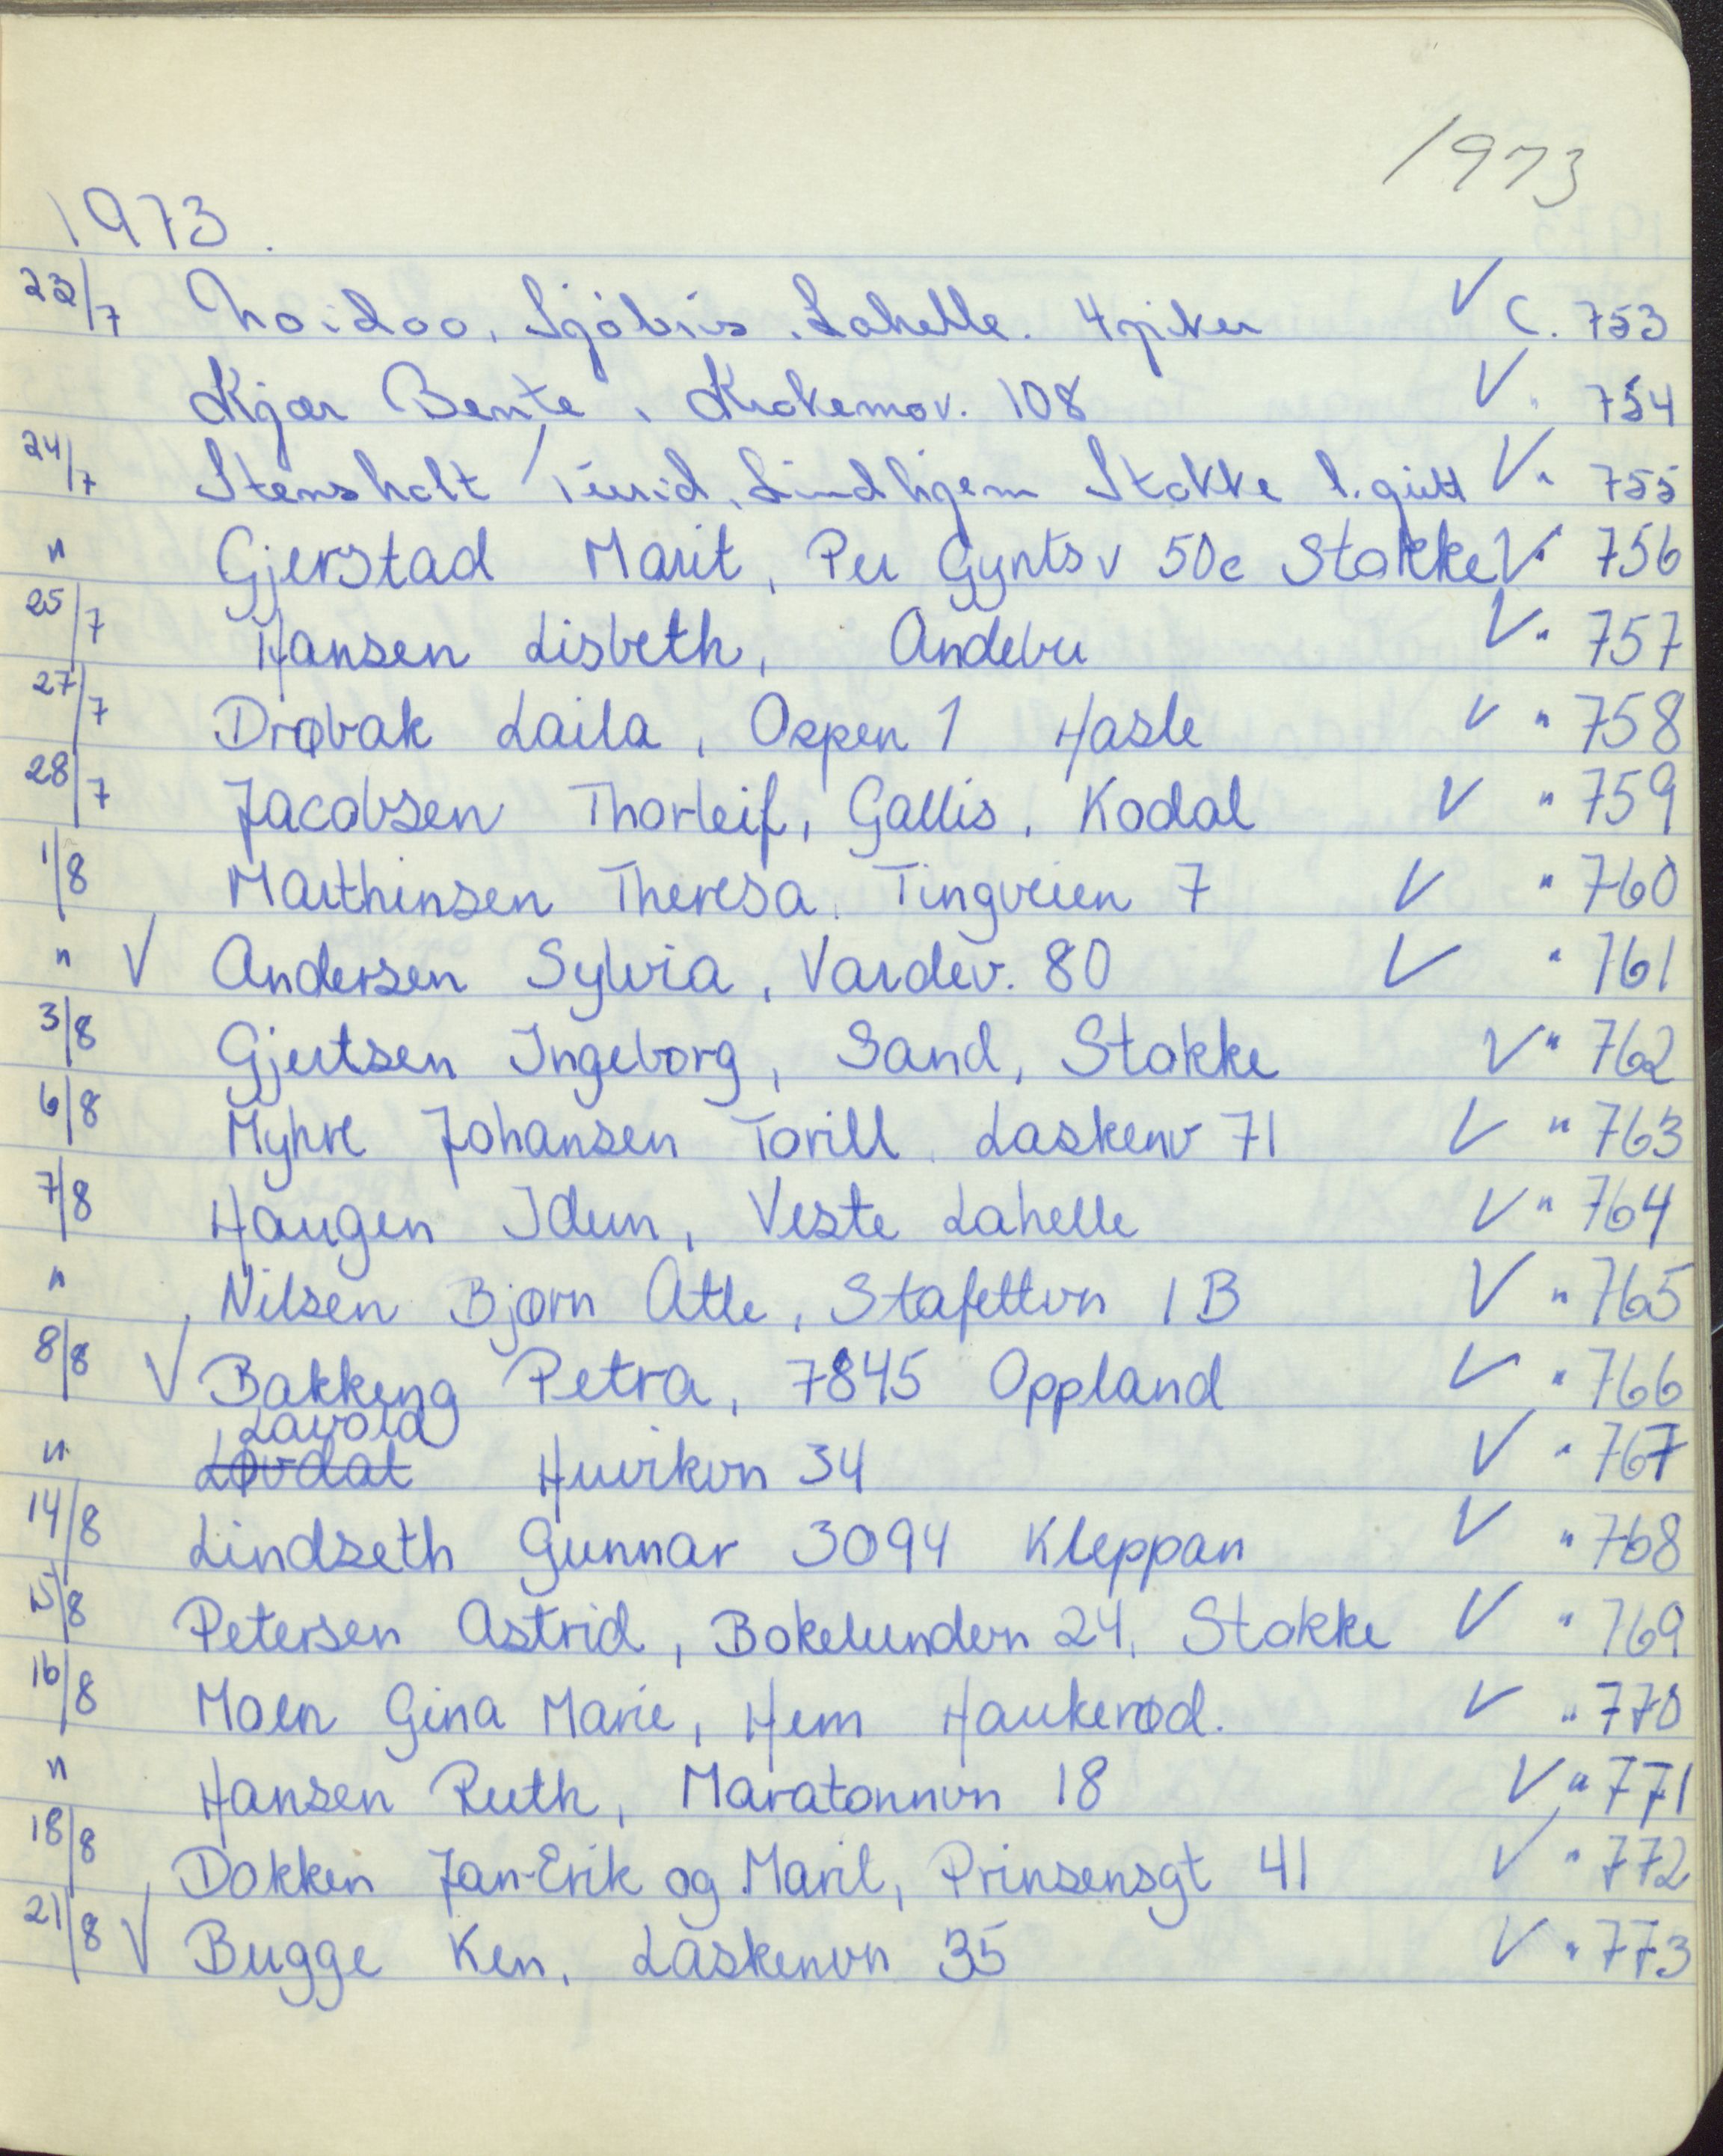 1973
1973.
23/7 Naidoo, Sjøbris, Lahelle. 4 piker V C. 753
Kjær Bente, Krokemov. 108 V " 754
24/7 Stensholt Turid, Lindhjem Stokke 1. gutt V " 755
" Gjerstad Marit, Per Gyntsv 50c Stokke V " 756
25/7 Hansen Lisbeth, Andebu V " 757
27/7 Drøbak Laila, Ospen 1 Hasle V " 758
28/7 Jacobsen Thorleif, Gallis, Kodal V " 759
1/8 Marthinsen Theresa. Tingveien 7 V " 760
" V Andersen Sylvia, Vardev. 80 V " 761
3/8 Gjertsen Ingeborg, Sand, Stokke V " 762
6/8 Myhre Johansen Torill. Laskenv 71 V " 763
7/8 Haugen Idun, Veste Lahelle V " 764
" Nilsen Bjørn Atle, Stafettvn 1 B V " 765
8/8 V Bakkeng Petra, 7845 Oppland V " 766
Lavold
" Løvdat Huvikvn 34 V " 767
14/8 Lindseth Gunnar 3094 Kleppan V " 768
15/8 Petersen Astrid, Bøkelunden 24, Stokke V " 769
16/8 Moen Gina Marie, Hem Haukerød. V " 770
" Hansen Ruth, Maratonnvn 18 V " 771
18/8 Dokken Jan-Erik og Maril, Prinsensgt 41 V " 772
21/8 V Bugge Ken, Laskenvn 35 V " 773